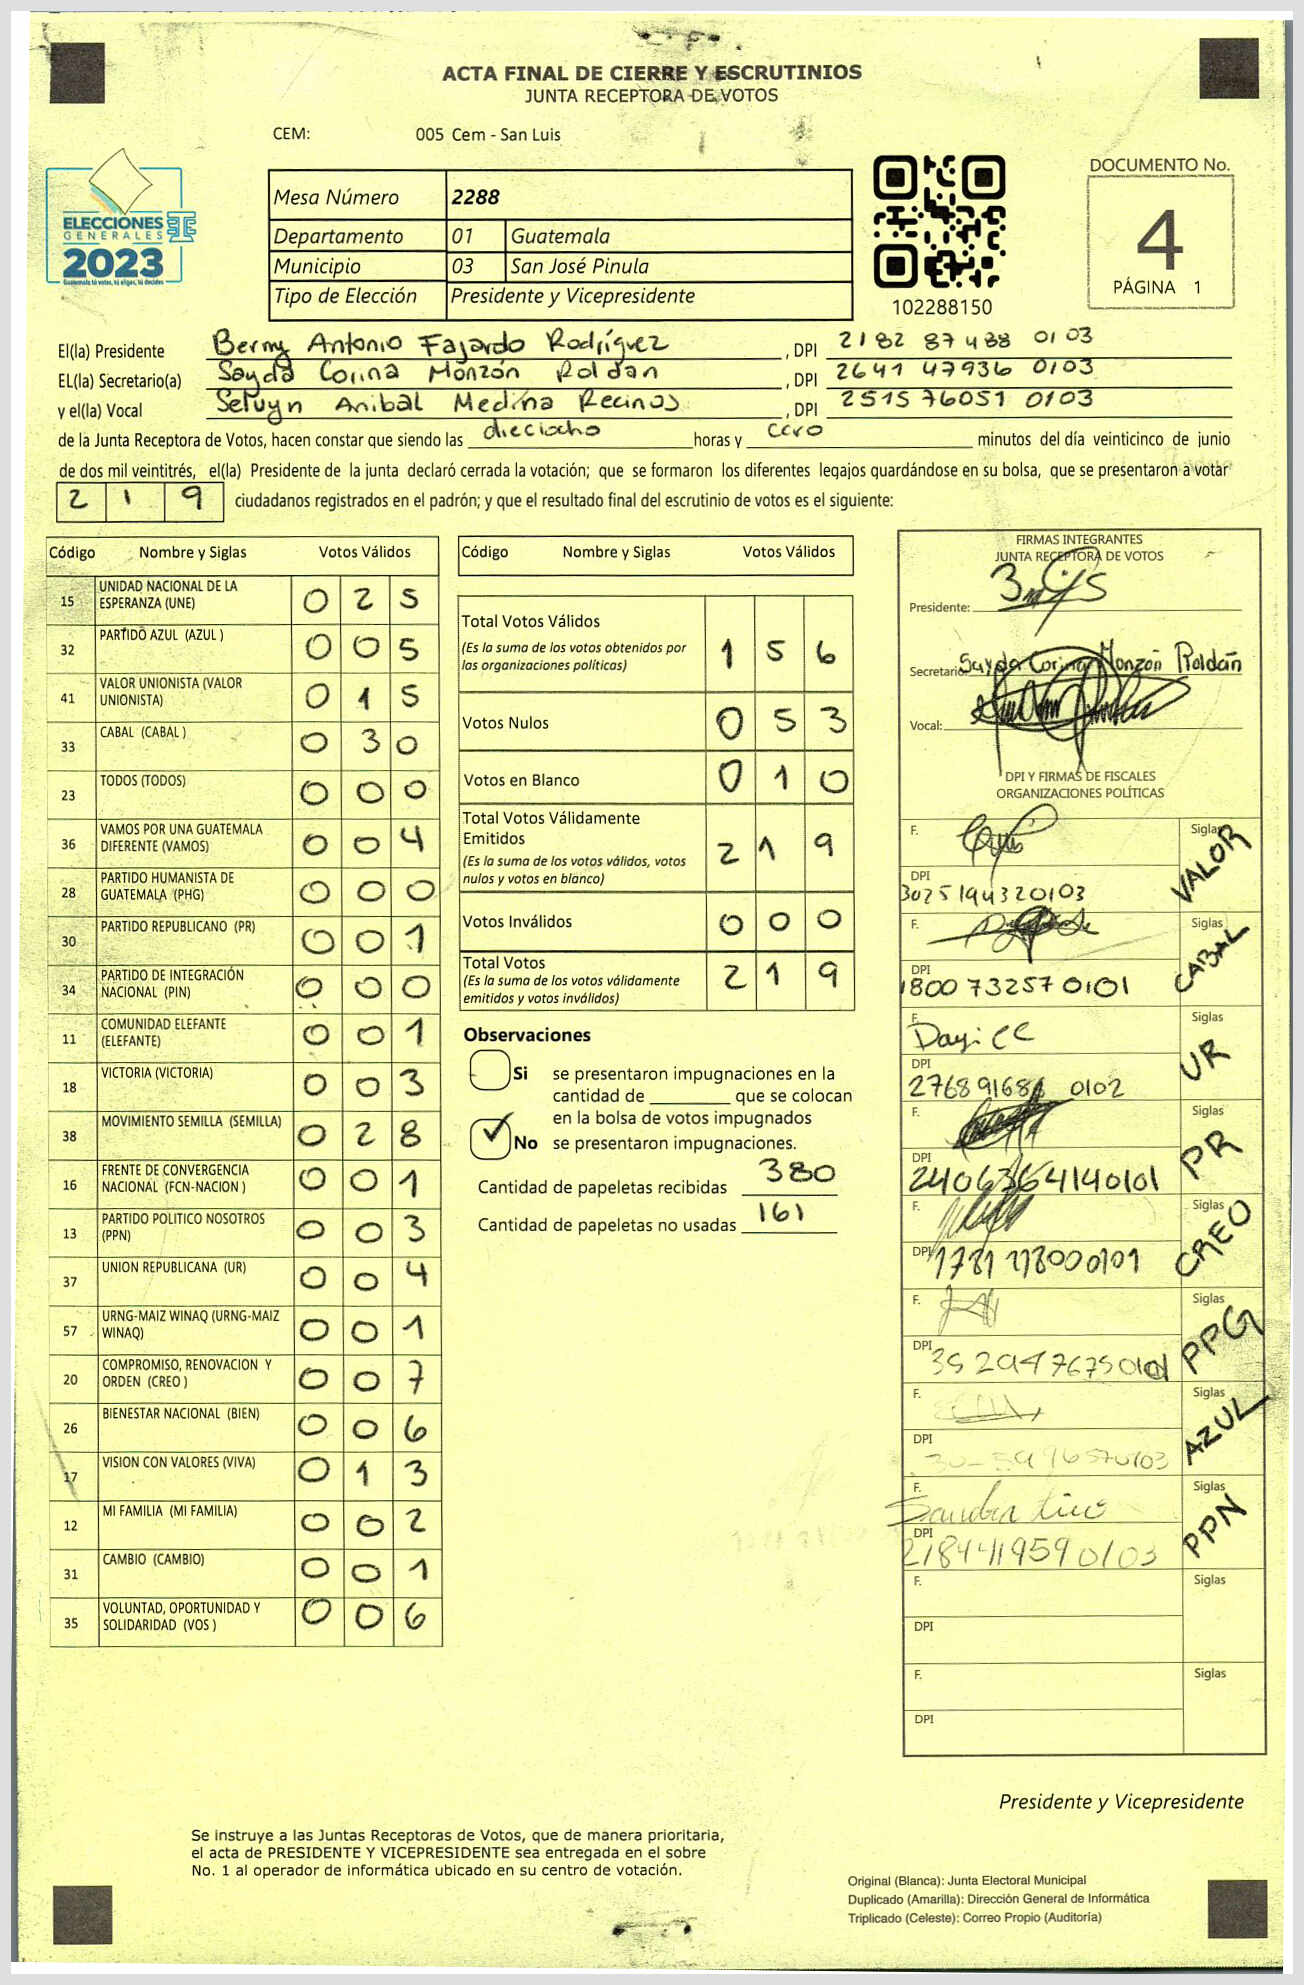 ACTA FINAL DE CIERRE Y ESCRUTINIOS
JUNTA RECEPTORA DE VOTOS
CEM: 005 Cem - San Luis
ELECCIONES
GENERALES
2023
Guatemala tú votas, tú eliges, tú decides
Mesa Número 2288
Departamento 01 Guatemala
Municipio 03 San José Pinula
Tipo de Elección Presidente y Vicepresidente
102288150
DOCUMENTO No.
4
PÁGINA 1
El(la) Presidente Berny Antonio Fajardo Rodríguez, DPI 2182 87488 0103
EL(la) Secretario(a) Sayda Corina Monzón Roldan, DPI 2641 47936 0103
y el(la) Vocal Seluyn Anibal Medina Recinos, DPI 2515 76051 0103
de la Junta Receptora de Votos, hacen constar que siendo las dieciocho horas y cero minutos del día veinticinco de junio
de dos mil veintitrés, el(la) Presidente de la junta declaró cerrada la votación; que se formaron los diferentes legajos guardándose en su bolsa, que se presentaron a votar
2 1 9 ciudadanos registrados en el padrón; y que el resultado final del escrutinio de votos es el siguiente:
Código Nombre y Siglas Votos Válidos
15 UNIDAD NACIONAL DE LA ESPERANZA (UNE) 0 2 5
32 PARTIDO AZUL (AZUL ) 0 0 5
41 VALOR UNIONISTA (VALOR UNIONISTA) 0 1 5
33 CABAL (CABAL ) 0 3 0
23 TODOS (TODOS) 0 0 0
36 VAMOS POR UNA GUATEMALA DIFERENTE (VAMOS) 0 0 4
28 PARTIDO HUMANISTA DE GUATEMALA (PHG) 0 0 0
30 PARTIDO REPUBLICANO (PR) 0 0 1
34 PARTIDO DE INTEGRACIÓN NACIONAL (PIN) 0 0 0
11 COMUNIDAD ELEFANTE (ELEFANTE) 0 0 1
18 VICTORIA (VICTORIA) 0 0 3
38 MOVIMIENTO SEMILLA (SEMILLA) 0 2 8
16 FRENTE DE CONVERGENCIA NACIONAL (FCN-NACION ) 0 0 1
13 PARTIDO POLITICO NOSOTROS (PPN) 0 0 3
37 UNION REPUBLICANA (UR) 0 0 4
57 URNG-MAIZ WINAQ (URNG-MAIZ WINAQ) 0 0 1
20 COMPROMISO, RENOVACION Y ORDEN (CREO ) 0 0 7
26 BIENESTAR NACIONAL (BIEN) 0 0 6
17 VISION CON VALORES (VIVA) 0 1 3
12 MI FAMILIA (MI FAMILIA) 0 0 2
31 CAMBIO (CAMBIO) 0 0 1
35 VOLUNTAD, OPORTUNIDAD Y SOLIDARIDAD (VOS ) 0 0 6
Código Nombre y Siglas Votos Válidos
Total Votos Válidos 1 5 6
(Es la suma de los votos obtenidos por
las organizaciones políticas)
Votos Nulos 0 5 3
Votos en Blanco 0 1 0
Total Votos Válidamente
Emitidos 2 1 9
(Es la suma de los votos válidos, votos
nulos y votos en blanco)
Votos Inválidos 0 0 0
Total Votos 2 1 9
(Es la suma de los votos válidamente
emitidos y votos inválidos)
Observaciones
Si se presentaron impugnaciones en la
cantidad de ________ que se colocan
en la bolsa de votos impugnados
No se presentaron impugnaciones.
Cantidad de papeletas recibidas 380
Cantidad de papeletas no usadas 161
FIRMAS INTEGRANTES
JUNTA RECEPTORA DE VOTOS
Presidente:
Secretario: Sayda Corina Monzón Roldán
Vocal:
DPI Y FIRMAS DE FISCALES
ORGANIZACIONES POLÍTICAS
F. Siglas VALOR
DPI 3025194320103
F. Siglas CABAL
DPI 1800 73257 0101
F. Siglas UR
DPI 0102
F. Siglas PR
DPI 2406364140101
F. Siglas CREO
DPI
F. Siglas PPG
DPI
F. Siglas AZUL
DPI
F. Sandra Siglas PPN
DPI
F. Siglas
DPI
F. Siglas
DPI
Presidente y Vicepresidente
Se instruye a las Juntas Receptoras de Votos, que de manera prioritaria,
el acta de PRESIDENTE Y VICEPRESIDENTE sea entregada en el sobre
No. 1 al operador de informática ubicado en su centro de votación.
Original (Blanca): Junta Electoral Municipal
Duplicado (Amarilla): Dirección General de Informática
Triplicado (Celeste): Correo Propio (Auditoría)